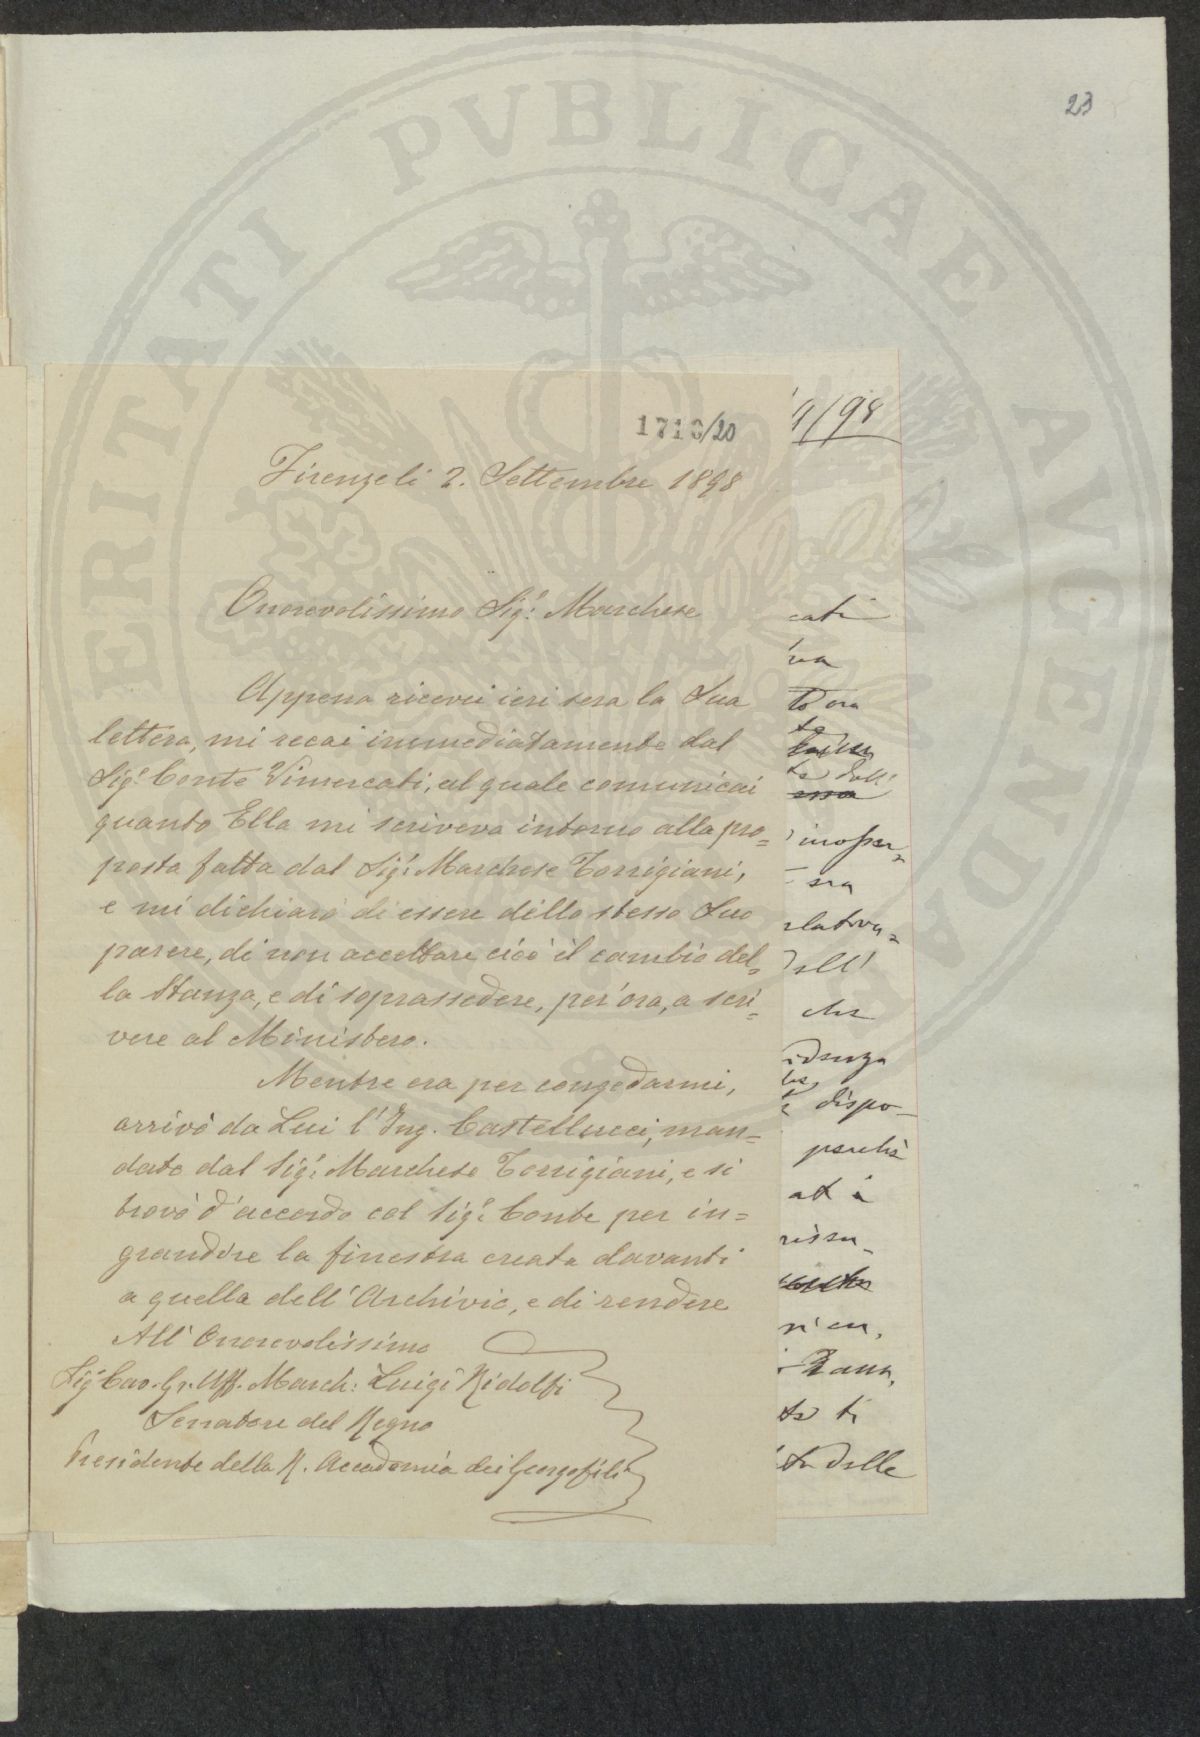 23
1710/20
Firenze li 2. Settembre 1898
Onorevolissimo Sigr. Marchese
Appena ricevei ieri sera la Sua
lettera, mi recai immediatamente dal
Sigr. Conte Vimercati, al quale comunicai
quanto Ella mi scriveva intorno alla pro=
posta fatta dal Sigr. Marchese Torrigiani,
e mi dichiarò di essere dello stesso Suo
parere, di non accettare cioè il cambio del=
la Stanza, e di soprassedere, per ora, a scri=
vere al Ministero.
Mentre era per congedarmi,
arrivò da Lui l'Ing. Castellucci, man=
dato dal Sigr. Marchese Torrigiani, e si
trovò d'accordo col Sigr. Conte per in=
grandire la finestra creata davanti
a quella dell'Archivio, e di rendere
All' Onorevolissimo
Sigr. Cav. Gr. Uff. March: Luigi Ridolfi
Senatore del Regno
Presidente della R. Accademia dei Georgofili
9/98
cati
ora
te
te dell'
essa
inoper=
sra
elativa=
dell'
che
idenza
dispo-
perchè
at è
rissu-
te ti
delle
PVBLICAE AVGENDAE
ERITATI